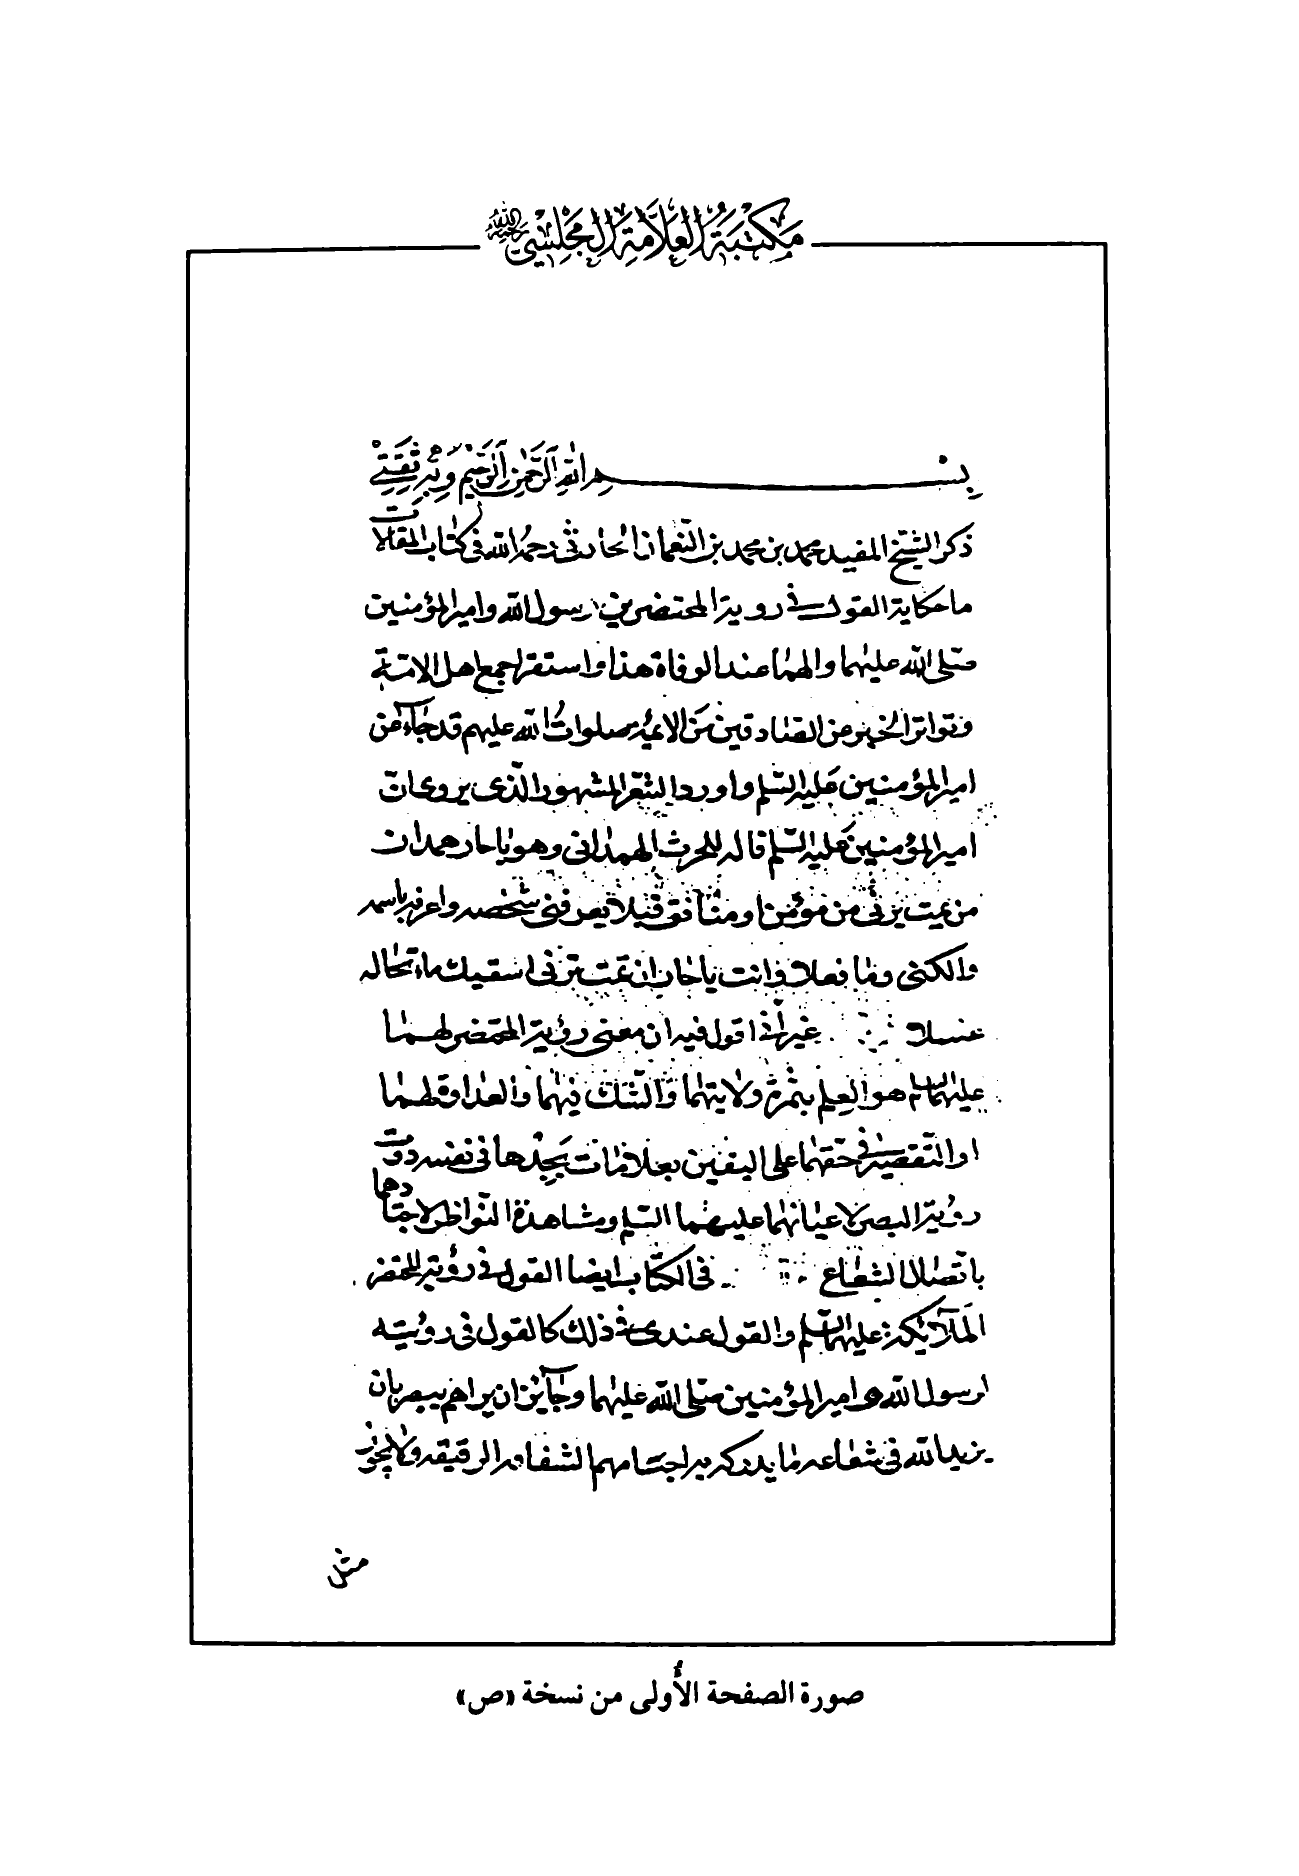 مكتبة العلامة المجلسي رحمه الله
بسم الله الرحمن الرحيم وبه ثقتي
ذكر الشيخ المفيد محمد بن محمد بن النعمان الحارثي رحمه الله في كتاب المقالات
ما حكايته القول في روية المحتضرين رسول الله وامير المؤمنين
صلى الله عليهما والهما عند الوفاة هذا واستقر اجمع اهل الامة
وتواتر الخبر عن الصادقين من الائمة صلوات الله عليهم قد جاء عن
امير المؤمنين عليه السلم واورد الشعر المشهور الذي يروى ان
امير المؤمنين عليه السلم قاله للحرث الهمداني وهو يا حار همدان
من يمت يرني من مؤمن او منافق قبلا يعرفني شخصه واعرفه باسمه
والكنى وما فعلا وانت يا حار ان تمت ترني اسقيك ماء تخاله
عسلا غير اني اقول فيه ان معنى رؤية المحتضر لهما
عليهما السلم هو العلم بثمرة ولايتهما والشك فيهما والعداوة لهما
او التقصير في حقهما على اليقين بعلامات يجدها في نفسه دون
رؤية البصر لاعيانهما عليهما السلم ومشاهدة النواظر لاجسادهما
باتصال الشعاع في الكتاب ايضا القول في رؤية المحتضر
الملآئكة عليهم السلم والقول عندي في ذلك كالقول في رؤيته
لرسول الله وامير المؤمنين صلى الله عليهما وجائز ان يراهم ببصره بان
يزيد الله في شعاعه ما يدرك به اجسامهم الشفافه الرقيقه ولا يجوز
مثل
صورة الصفحة الأولى من نسخة «ص»